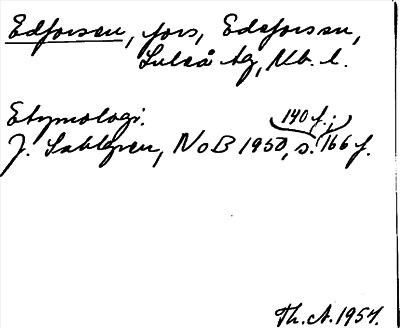 Edforsen, fors, Edeforsen,
Luleå tg, Nb. l.
Etymologi.
140 f.;
J. Sahlgren, NoB 1950, s. 166 f.
Th. A. 1957.